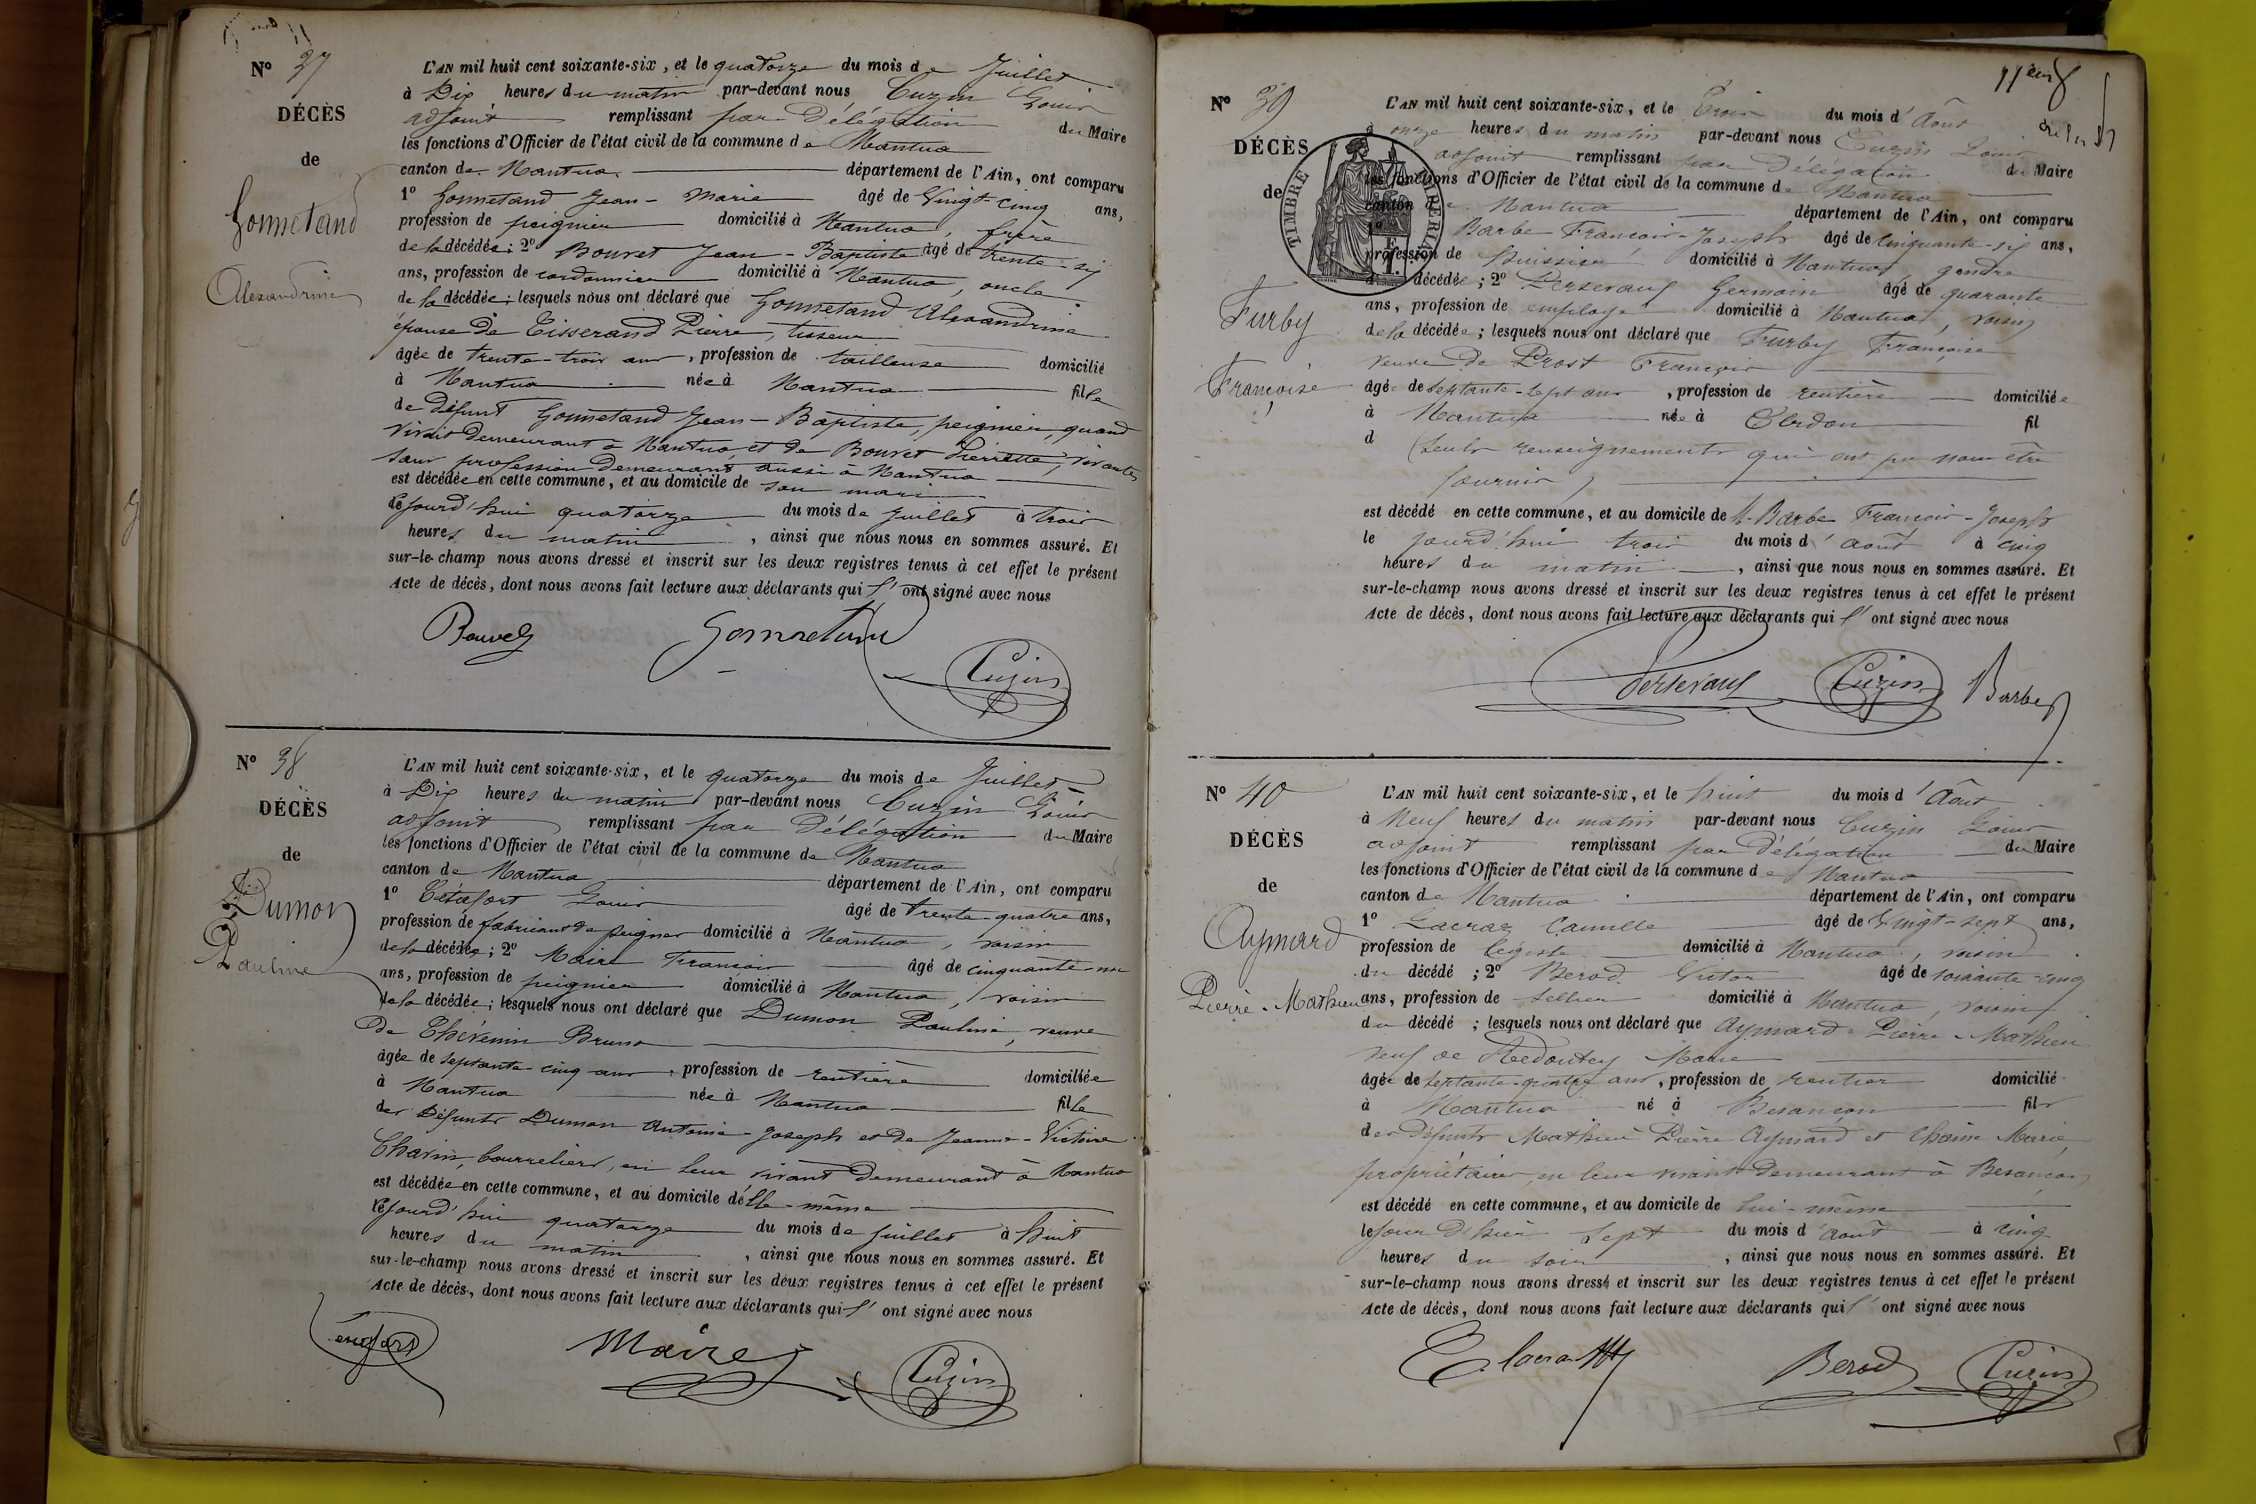 Nº 37
DÉCÈS
de
Gonnetand
Alexandrine
L'AN mil huit cent soixante-six, et le quatorze du mois de Juillet
à Dix heures du matin par-devant nous Cuzin Louis
adjoint remplissant par Délégation du Maire
les fonctions d'Officier de l'état civil de la commune de Nantua
canton de Nantua département de l'Ain, ont comparu
1º Gonnetand Jean-Marie âgé de Vingt-cinq ans,
profession de peignier domicilié à Nantua, frère
de la décédée; 2º Bouvet Jean-Baptiste âgé de trente-six
ans, profession de cordonnier domicilié à Nantua, oncle
de la décédée; lesquels nous ont déclaré que Gonnetand Alexandrine
épouse de Tisserand Pierre, tisseur
âgée de trente-trois ans, profession de tailleuse domicilié
à Nantua née à Nantua fille
de défunt Gonnetand Jean-Baptiste, peignier, quand
vivait demeurant à Nantua, et de Bouvet Pierrette, vivante,
sans profession demeurant aussi à Nantua
est décédée en cette commune, et au domicile de son mari
lejourd'hui quatorze du mois de Juillet à trois
heures du matin, ainsi que nous nous en sommes assuré. Et
sur-le-champ nous avons dressé et inscrit sur les deux registres tenus à cet effet le présent
Acte de décès, dont nous avons fait lecture aux déclarants qui l' ont signé avec nous
Bouvet Gonnetand
Cuzin
Nº 38
DÉCÈS
de
Dumon
Pauline
L'AN mil huit cent soixante-six, et le quatorze du mois de Juillet
à Dix heures du matin par-devant nous Cuzin Louis
adjoint remplissant par Délégation du Maire
les fonctions d'Officier de l'état civil de la commune de Nantua
canton de Nantua département de l'Ain, ont comparu
1º Louis âgé de trente-quatre ans,
profession de fabricant de peignes domicilié à Nantua, voisin
de la décédée; 2º Maire François âgé de cinquante-un
ans, profession de peignier domicilié à Nantua, voisin
de la décédée; lesquels nous ont déclaré que Dumon Pauline, veuve
de Thévenin Bruno
âgée de septante-cinq ans, profession de rentière domiciliée
à Nantua née à Nantua fille
des défunts Dumon Antoine-Joseph et de Jeanne-Victoire
Chavin, bourreliers, en leur vivant demeurant à Nantua
est décédée en cette commune, et au domicile d'elle-même
lejourd'hui quatorze du mois de juillet à huit
heures du matin, ainsi que nous nous en sommes assuré. Et
sur-le-champ nous avons dressé et inscrit sur les deux registres tenus à cet effet le présent
Acte de décès, dont nous avons fait lecture aux déclarants qui l' ont signé avec nous
Maire
Cuzin
Nº 39
DÉCÈS
de
Furby
Françoise
TIMBRE IMPERIAL
L'AN mil huit cent soixante-six, et le Trois du mois d'Août
à onze heures du matin par-devant nous Cuzin Louis
adjoint remplissant par Délégation du Maire
les fonctions d'Officier de l'état civil de la commune de Nantua
canton de Nantua département de l'Ain, ont comparu
1º Barbe François-Joseph âgé de cinquante-six ans,
profession de huissier domicilié à Nantua, gendre
décédée; 2º Perseraul Germain âgé de quarante
ans, profession de employé domicilié à Nantua, voisin
de la décédée; lesquels nous ont déclaré que Furby Françoise
veuve de Prost François
âgée de septante-sept ans, profession de rentière domiciliée
à Nantua née à Cerdon fil
d (seuls renseignements qui ont pu nous être
fournis)
est décédé en cette commune, et au domicile de M. Barbe François-Joseph
le jourd'hui trois du mois d'août à cinq
heures du matin, ainsi que nous nous en sommes assuré. Et
sur-le-champ nous avons dressé et inscrit sur les deux registres tenus à cet effet le présent
Acte de décès, dont nous avons fait lecture aux déclarants qui l' ont signé avec nous
Perseraul Cuzin Barbe
Nº 40
DÉCÈS
de
Aymard
Pierre-Mathieu
L'AN mil huit cent soixante-six, et le huit du mois d'Août
à Neuf heures du matin par-devant nous Cuzin Louis
adjoint remplissant par Délégation du Maire
les fonctions d'Officier de l'état civil de la commune de Nantua
canton de Nantua département de l'Ain, ont comparu
1º Lacraz Camille âgé de Vingt-sept ans,
profession de Légiste domicilié à Nantua, voisin
du décédé; 2º Berod Victor âgé de soixante-cinq
ans, profession de sellier domicilié à Nantua, voisin
du décédé; lesquels nous ont déclaré que Aymard Pierre-Mathieu
veuf de Redoutey Marie
âgé de septante-quatre ans, profession de rentier domicilié
à Nantua né à Besançon fils
des défunts Mathieu Pierre Aymard et Marie
propriétaires, en leur vivant demeurant à Besançon
est décédé en cette commune, et au domicile de lui-même
lejour d'hier sept du mois d'août à cinq
heures du soir, ainsi que nous nous en sommes assuré. Et
sur-le-champ nous avons dressé et inscrit sur les deux registres tenus à cet effet le présent
Acte de décès, dont nous avons fait lecture aux déclarants qui l' ont signé avec nous
C. Lacraz Berod Cuzin